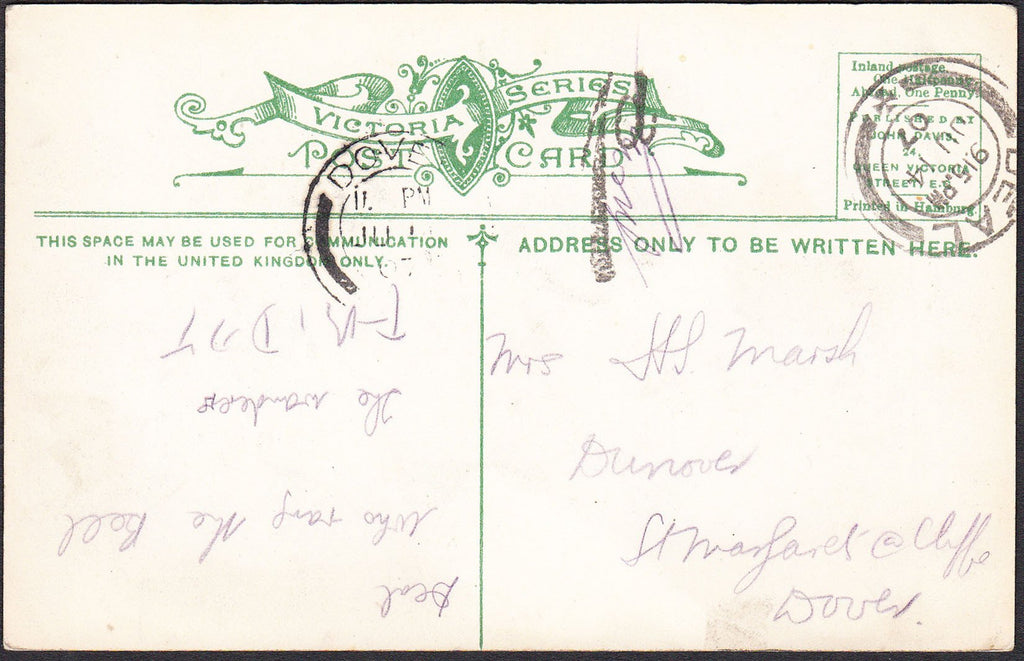 VICTORIA SERIES
POST CARD
Inland postage,
One Halfpenny
Abroad, One Penny.
PUBLISHED BY
JOHN DAVIS,
24,
QUEEN VICTORIA
STREET E.C.
Printed in Hamburg.
DEAL
9 15 PM
JU 14
07
DOVER
11 PM
JUL 1
07
1d
THIS SPACE MAY BE USED FOR COMMUNICATION
IN THE UNITED KINGDOM ONLY.
ADDRESS ONLY TO BE WRITTEN HERE.
Mrs H.S. Marsh
Dunover
St Margarets @ Cliffe
Dover.
Deal
Who rang the Bell
The wanderer